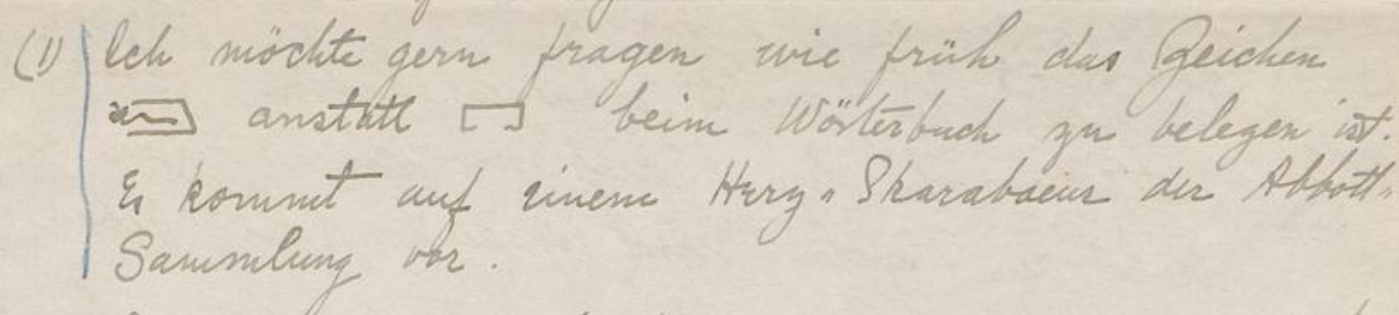 (1) Ich möchte gern fragen wie früh das Zeichen
anstatt beim Wörterbuch zu belegen ist.
Es kommt auf einem Herz-Skarabaeus der Abbott-
Sammlung vor.